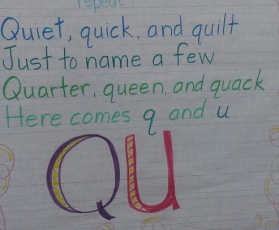 repeat
Quiet, quick, and quilt
Just to name a few
Quarter, queen, and quack
Here comes q and u
QU